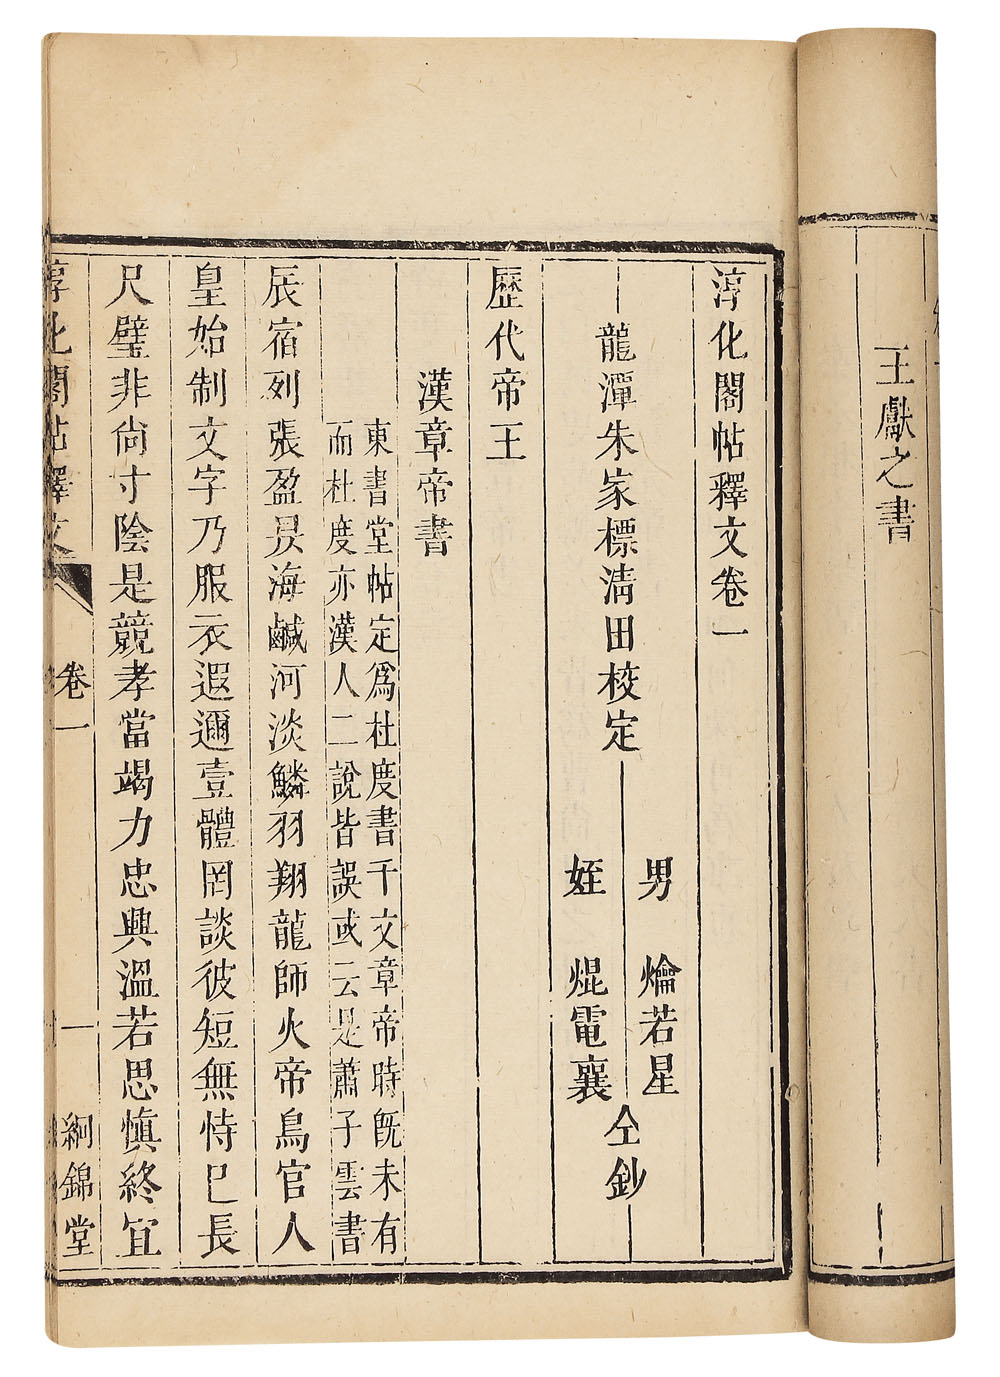 王獻之書
淳化閣帖釋文卷一
龍潭朱家標淸田校定
男 爚若星
姪 焜電襄
仝鈔
歷代帝王
漢章帝書
東書堂帖定爲杜度書千文章帝時旣未有
而杜度亦漢人二說皆誤或云是蕭子雲書
辰宿列張盈昃海鹹河淡鱗羽翔龍師火帝鳥官人
皇始制文字乃服衣遐邇壹體罔談彼短無恃已長
尺璧非尙寸陰是競孝當竭力忠興溫若思愼終宜
淳化閣帖釋文
卷一
一
絅錦堂